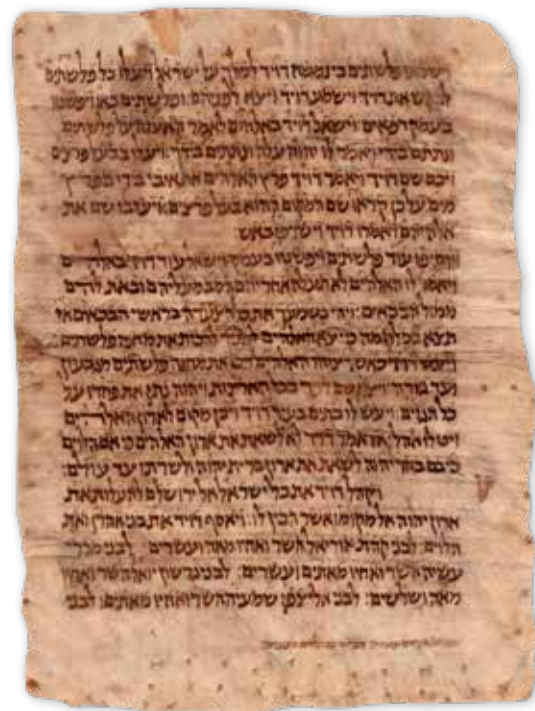 וישמעו פלשתים כי נמשח דויד למלך על ישראל ויעלו כל פלשתים
לבקש את דויד וישמע דויד ויצא לפניהם: ופלשתים באו ויפשטו
בעמק רפאים: וישאל דויד באלהים לאמר האעלה על פלשתים
ונתתם בידי ויאמר לו יהוה עלה ונתתים בידך: ויעלו בבעל פרצים
ויכם שם דויד ויאמר דויד פרץ האלהים את אויבי בידי כפרץ
מים על כן קראו שם המקום ההוא בעל פרצים: ויעזבו שם את
אלהיהם ויאמר דויד וישרפו באש:
ויסיפו עוד פלשתים ויפשטו בעמק: וישאל עוד דויד באלהים
ויאמר לו האלהים לא תעלה אחריהם הסב מעליהם ובאת להם
ממול הבכאים: ויהי כשמעך את קול הצעדה בראשי הבכאים אז
תצא במלחמה כי יצא האלהים לפניך להכות את מחנה פלשתים:
ויעש דויד כאשר צוהו האלהים ויכו את מחנה פלשתים מגבעון
ועד גזרה: ויצא שם דויד בכל הארצות ויהוה נתן את פחדו על
כל הגוים: ויעש לו בתים בעיר דויד ויכן מקום לארון האלהים
ויט לו אהל: אז אמר דויד לא לשאת את ארון האלהים כי אם הלוים
כי בם בחר יהוה לשאת את ארון ברית יהוה ולשרתו עד עולם:
ויקהל דויד את כל ישראל אל ירושלם להעלות את
ארון יהוה אל מקומו אשר הכין לו: ויאסף דויד את בני אהרן ואת
הלוים: לבני קהת אוריאל השר ואחיו מאה ועשרים: לבני מררי
עשיה השר ואחיו מאתים ועשרים: לבני גרשון יואל השר ואחיו
מאה ושלשים: לבני אליצפן שמעיה השר ואחיו מאתים: לבני